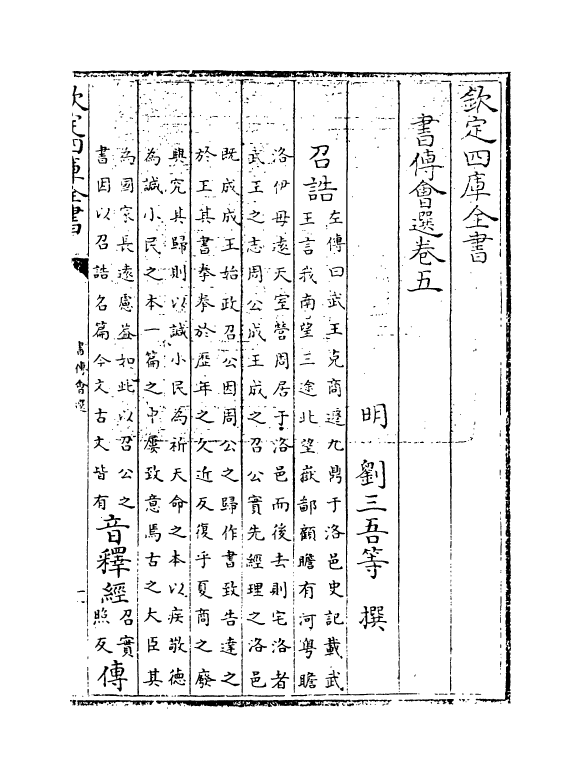 欽定四庫全書
書傳會選卷五
明 劉三吾等 撰
召誥
左傳曰武王克商遷九鼎于洛邑史記載武
王言我南望三途北望嶽鄙顧瞻有河粤瞻
洛伊毋遠天室營周居于洛邑而後去則宅洛者
武王之志周公成王成之召公實先經理之洛邑
既成成王始政召公因周公之歸作書致告達之
於王其書拳拳於歴年之久近反復乎夏商之廢
興究其歸則以諴小民為祈天命之本以疾敬德
為諴小民之本一篇之中屢致意焉古之大臣其
為國家長遠慮蓋如此以召公之
書因以召誥名篇今文古文皆有
音釋經
召實
照反
傳
欽定四庫全書
書傳會選
一